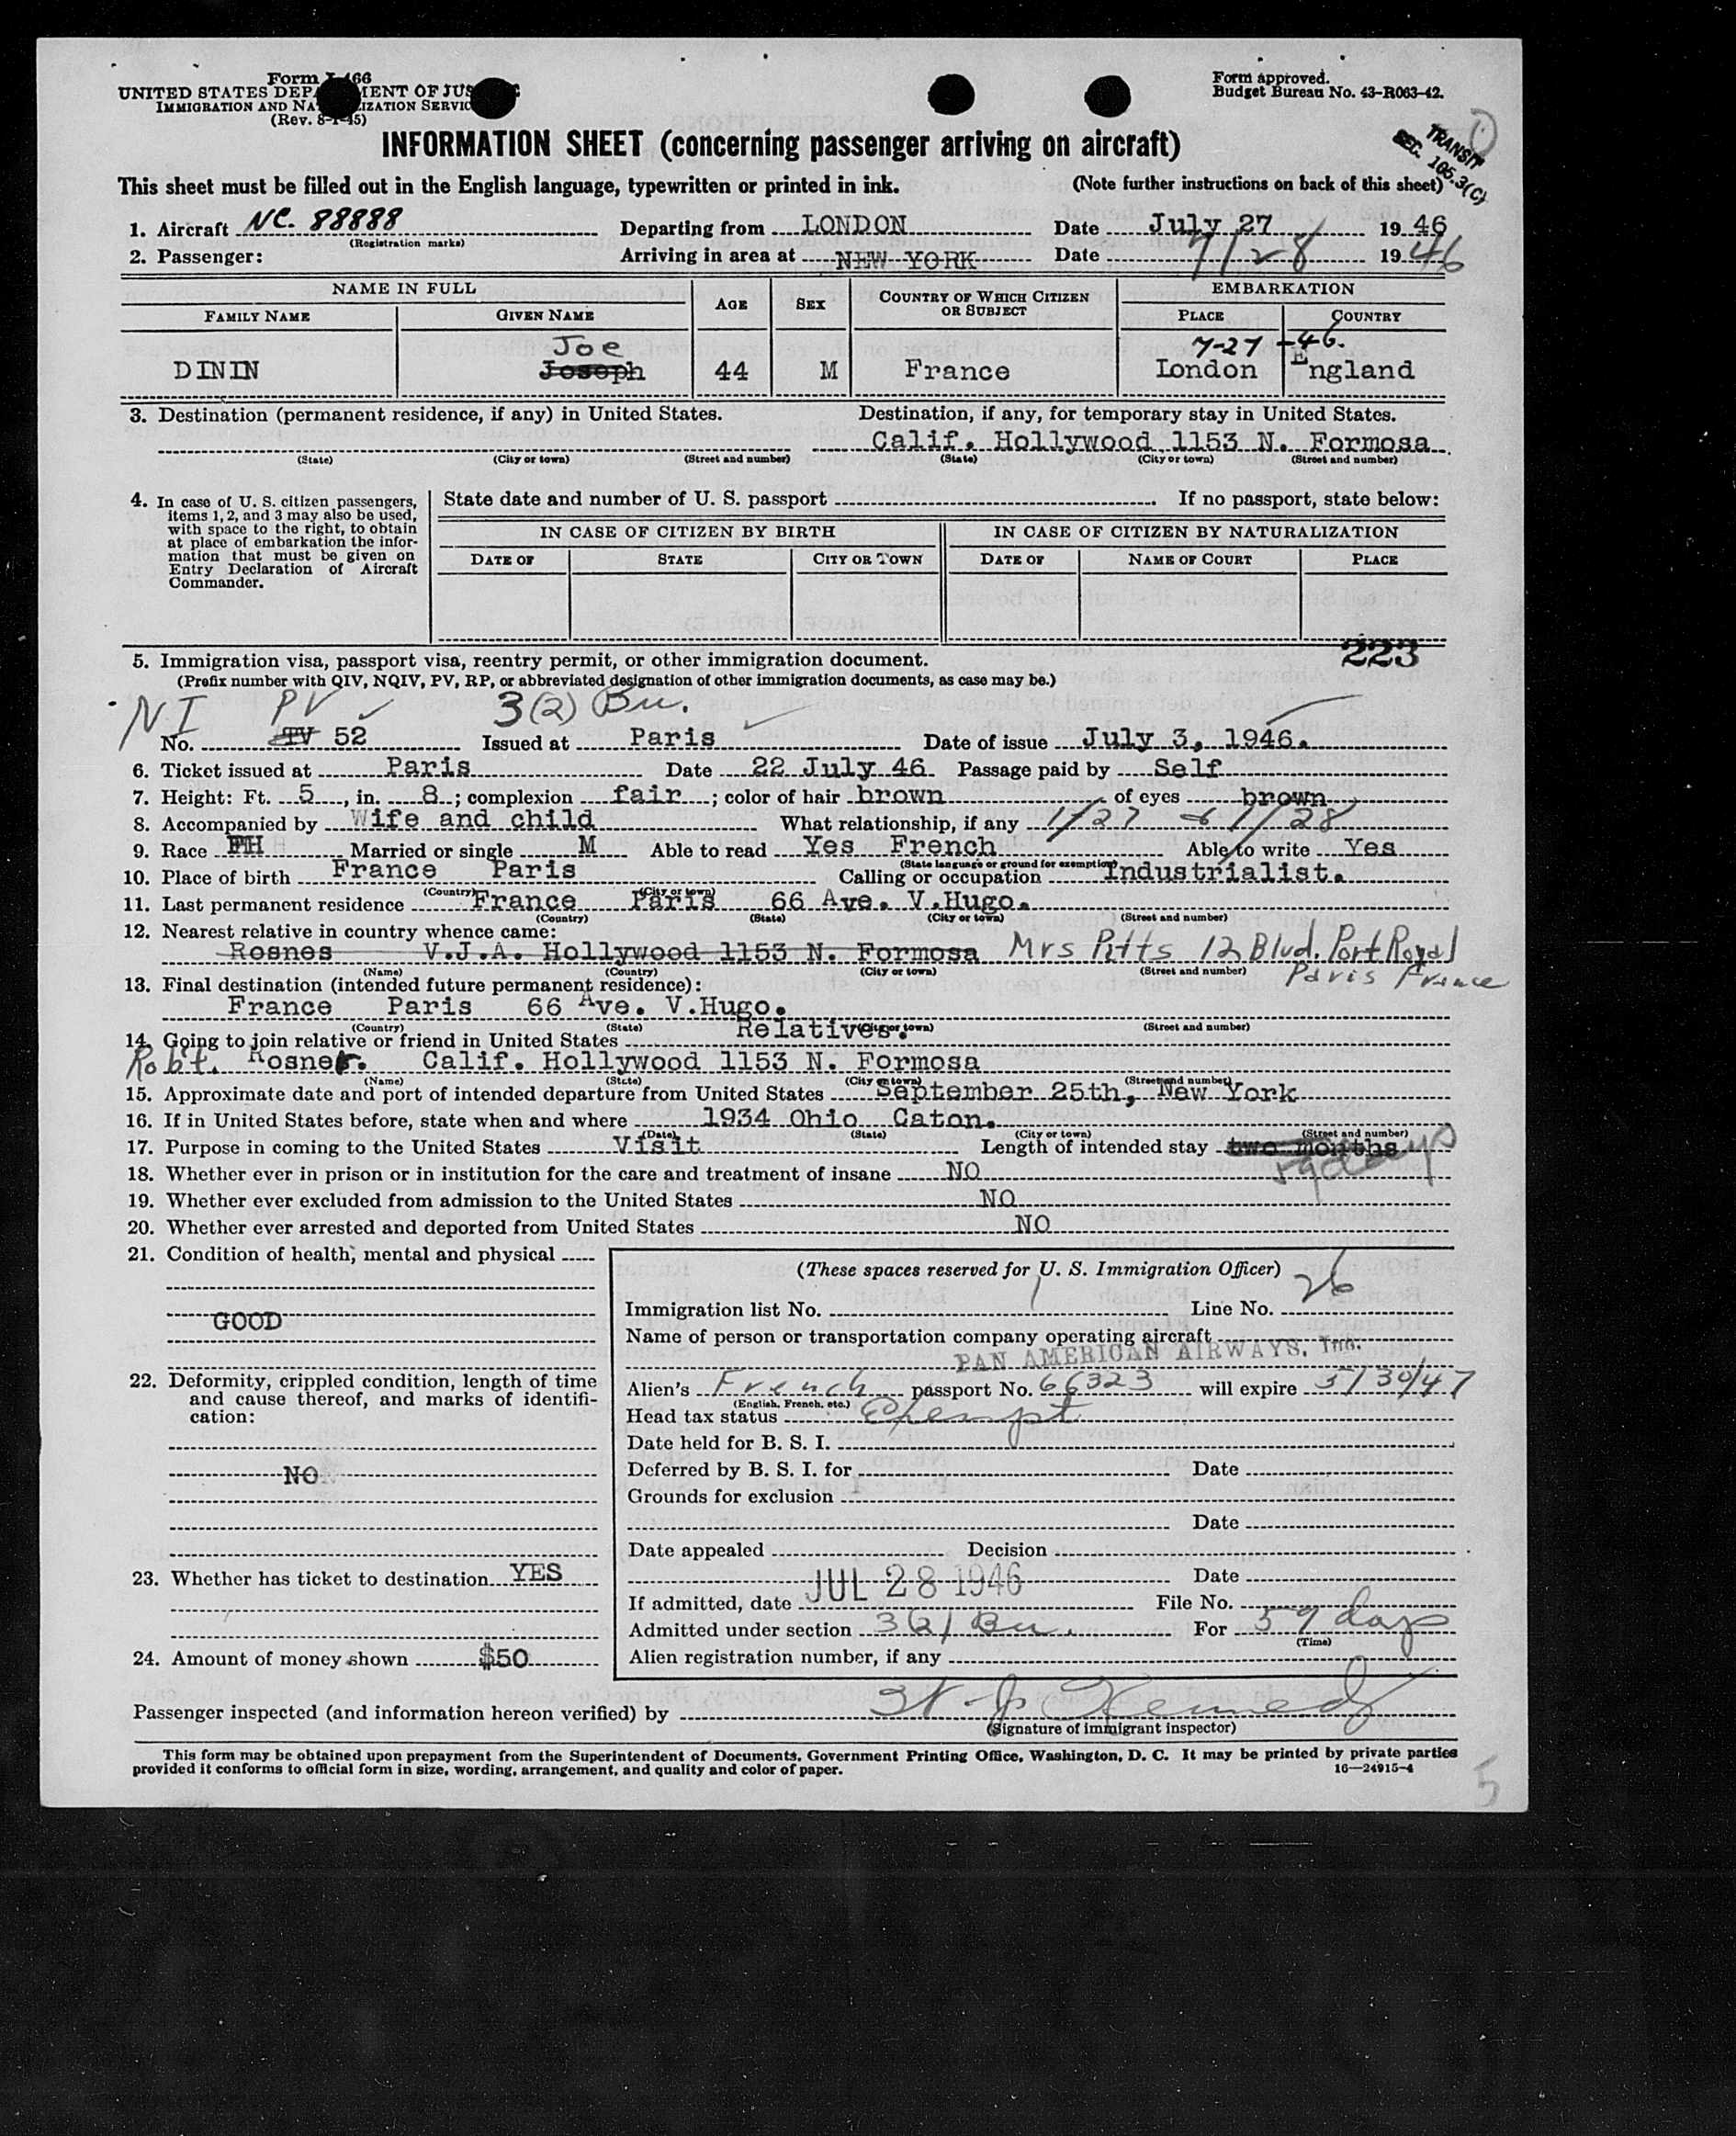 Form I-466
UNITED STATES DEPARTMENT OF JUSTICE
IMMIGRATION AND NATURALIZATION SERVICE
(Rev. 8-1-45)
Form approved.
Budget Bureau No. 43-R063-42.
TRANSIT
SEC. 105.3(C)
INFORMATION SHEET (concerning passenger arriving on aircraft)
This sheet must be filled out in the English language, typewritten or printed in ink. (Note further instructions on back of this sheet)
1. Aircraft NC. 88888 Departing from LONDON Date July 27 1946
(Registration marks)
2. Passenger: Arriving in area at NEW YORK Date 7/28 1946
NAME IN FULL AGE SEX COUNTRY OF WHICH CITIZEN OR SUBJECT EMBARKATION
FAMILY NAME GIVEN NAME PLACE COUNTRY
Joe 7-27-46.
DININ Joseph 44 M France London England
3. Destination (permanent residence, if any) in United States. Destination, if any, for temporary stay in United States.
Calif. Hollywood 1153 N. Formosa
(State) (City or town) (Street and number) (State) (City or town) (Street and number)
4. In case of U. S. citizen passengers, items 1, 2, and 3 may also be used, with space to the right, to obtain at place of embarkation the information that must be given on Entry Declaration of Aircraft Commander.
State date and number of U. S. passport If no passport, state below:
IN CASE OF CITIZEN BY BIRTH IN CASE OF CITIZEN BY NATURALIZATION
DATE OF STATE CITY OR TOWN DATE OF NAME OF COURT PLACE
223
5. Immigration visa, passport visa, reentry permit, or other immigration document.
(Prefix number with QIV, NQIV, PV, RP, or abbreviated designation of other immigration documents, as case may be.)
NI PV 3(2) Bu.
No. TV 52 Issued at Paris Date of issue July 3, 1946.
6. Ticket issued at Paris Date 22 July 46 Passage paid by Self
7. Height: Ft. 5, in. 8; complexion fair; color of hair brown of eyes brown
8. Accompanied by Wife and child What relationship, if any 1/27 & 1/28
9. Race FH Married or single M Able to read Yes French Able to write Yes
(State language or ground for exemption)
10. Place of birth France Paris Calling or occupation Industrialist.
(Country) (City or town)
11. Last permanent residence France Paris 66 Ave. V.Hugo.
(Country) (State) (City or town) (Street and number)
12. Nearest relative in country whence came:
Rosnes V.J.A. Hollywood 1153 N. Formosa Mrs Pitts 12 Blvd. Port Royal
(Name) (Country) (City or town) (Street and number) Paris France
13. Final destination (intended future permanent residence):
France Paris 66 Ave. V.Hugo.
(Country) (State) (City or town) (Street and number)
14. Going to join relative or friend in United States Relatives.
Robt. Rosner. Calif. Hollywood 1153 N. Formosa
(Name) (State) (City or town) (Street and number)
15. Approximate date and port of intended departure from United States September 25th, New York
16. If in United States before, state when and where 1934 Ohio Caton.
(Date) (State) (City or town) (Street and number)
17. Purpose in coming to the United States Visit Length of intended stay two months
59 days
18. Whether ever in prison or in institution for the care and treatment of insane NO
19. Whether ever excluded from admission to the United States NO
20. Whether ever arrested and deported from United States NO
21. Condition of health, mental and physical
GOOD
22. Deformity, crippled condition, length of time and cause thereof, and marks of identification:
NO
23. Whether has ticket to destination YES
24. Amount of money shown $50
(These spaces reserved for U. S. Immigration Officer)
Immigration list No. 1 Line No. 26
Name of person or transportation company operating aircraft
PAN AMERICAN AIRWAYS, Inc.
Alien's French passport No. 66323 will expire 5/30/47
(English, French, etc.)
Head tax status Exempt
Date held for B. S. I.
Deferred by B. S. I. for Date
Grounds for exclusion
Date
Date appealed Decision
Date
If admitted, date JUL 28 1946 File No.
Admitted under section 3(2) Bu. For 59 days
(Time)
Alien registration number, if any
Passenger inspected (and information hereon verified) by Kennedy
(Signature of immigrant inspector)
This form may be obtained upon prepayment from the Superintendent of Documents, Government Printing Office, Washington, D. C. It may be printed by private parties
provided it conforms to official form in size, wording, arrangement, and quality and color of paper. 16—24915-4
5